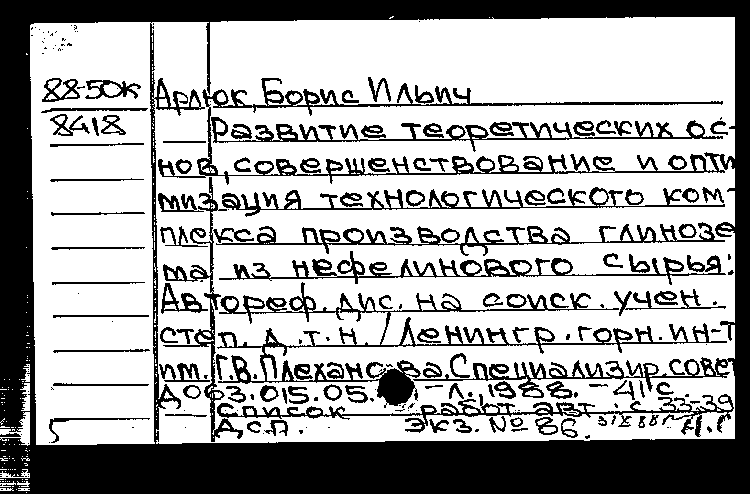 88-50к Арлюк, Борис Ильич
8418 Развитие теоретических ос-
нов, совершенствование и опти
мизация технологического ком-
плекса производства глинозе
ма из нефелинового сырья:
Автореф. дис. на соиск. учен.
степ. д.т.н. / Ленингр. горн. ин-т
им. Г.В. Плеханова. Специализир. совет
Д 063.015.05. – Л., 1988. – 41 с.
Список работ авт. с 33-39
Д.С.П. Экз. № 86.
5